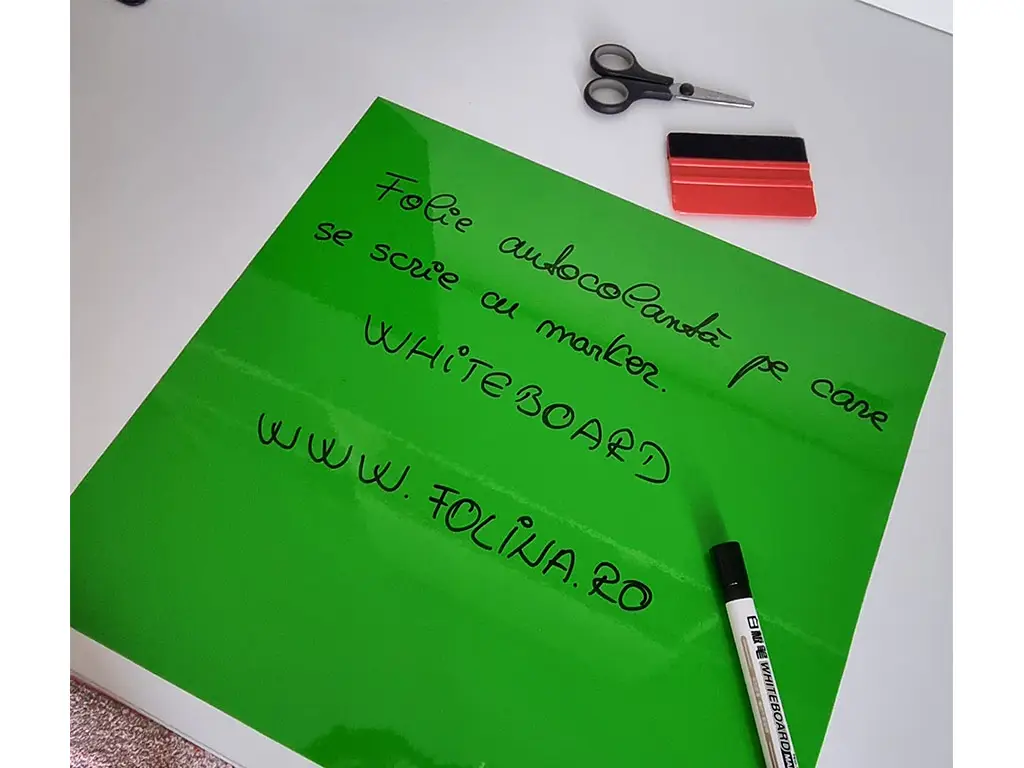 Folie autocolantă pe care
se scrie cu marker.
WHiTEBOARD
WWW.FOLiNA.RO
白板笔 WHITEBOARD MA